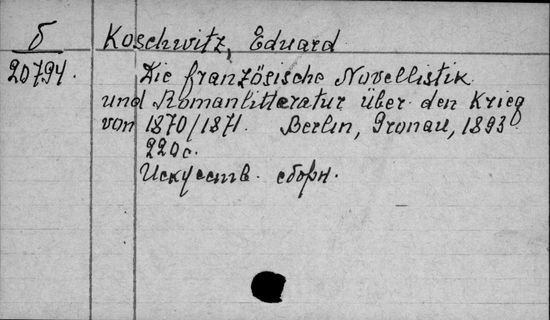 б
20794.
Koschwitz, Eduard
Die französische Novellistik
und Romanlitteratur über den Krieg
von 1870/1871. Berlin, Gronau, 1893.
220 c.
Искусств. сборн.